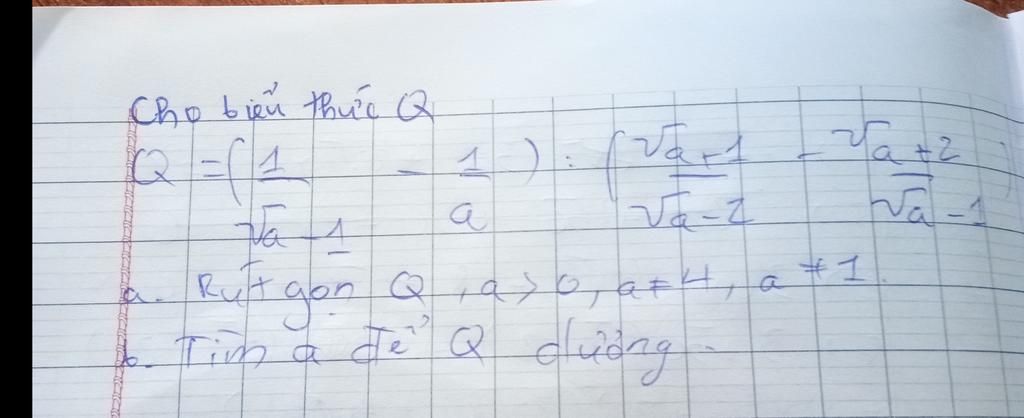 Cho biểu thức Q
Q = (1/(√a - 1) - 1/a) : ((√a + 1)/(√a - 2) - (√a + 2)/(√a - 1))
a. Rút gọn Q, a > 0, a ≠ 4, a ≠ 1.
b. Tìm a để Q dương.